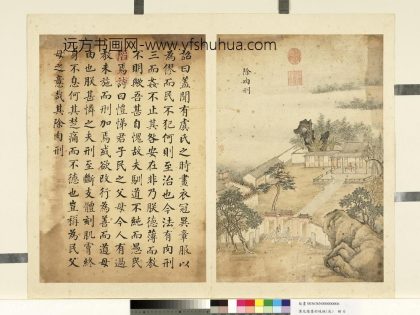 远方书画网-www.yfshuhua.com/
除肉刑
詔曰蓋聞有虞氏之時畫衣冠異章服以
為僇而民不犯何則至治也今法有肉刑
三而姦不止其咎安在非乃朕德薄而教
不明歟吾甚自愧故夫馴道不純而愚民
陷焉詩曰愷悌君子民之父母今人有過
教未施而刑加焉或欲改行為善而道毋
由也朕甚憐之夫刑至斷支體刻肌膚終
身不息何其楚痛而不德也豈稱為民父
母之意哉其除肉刑